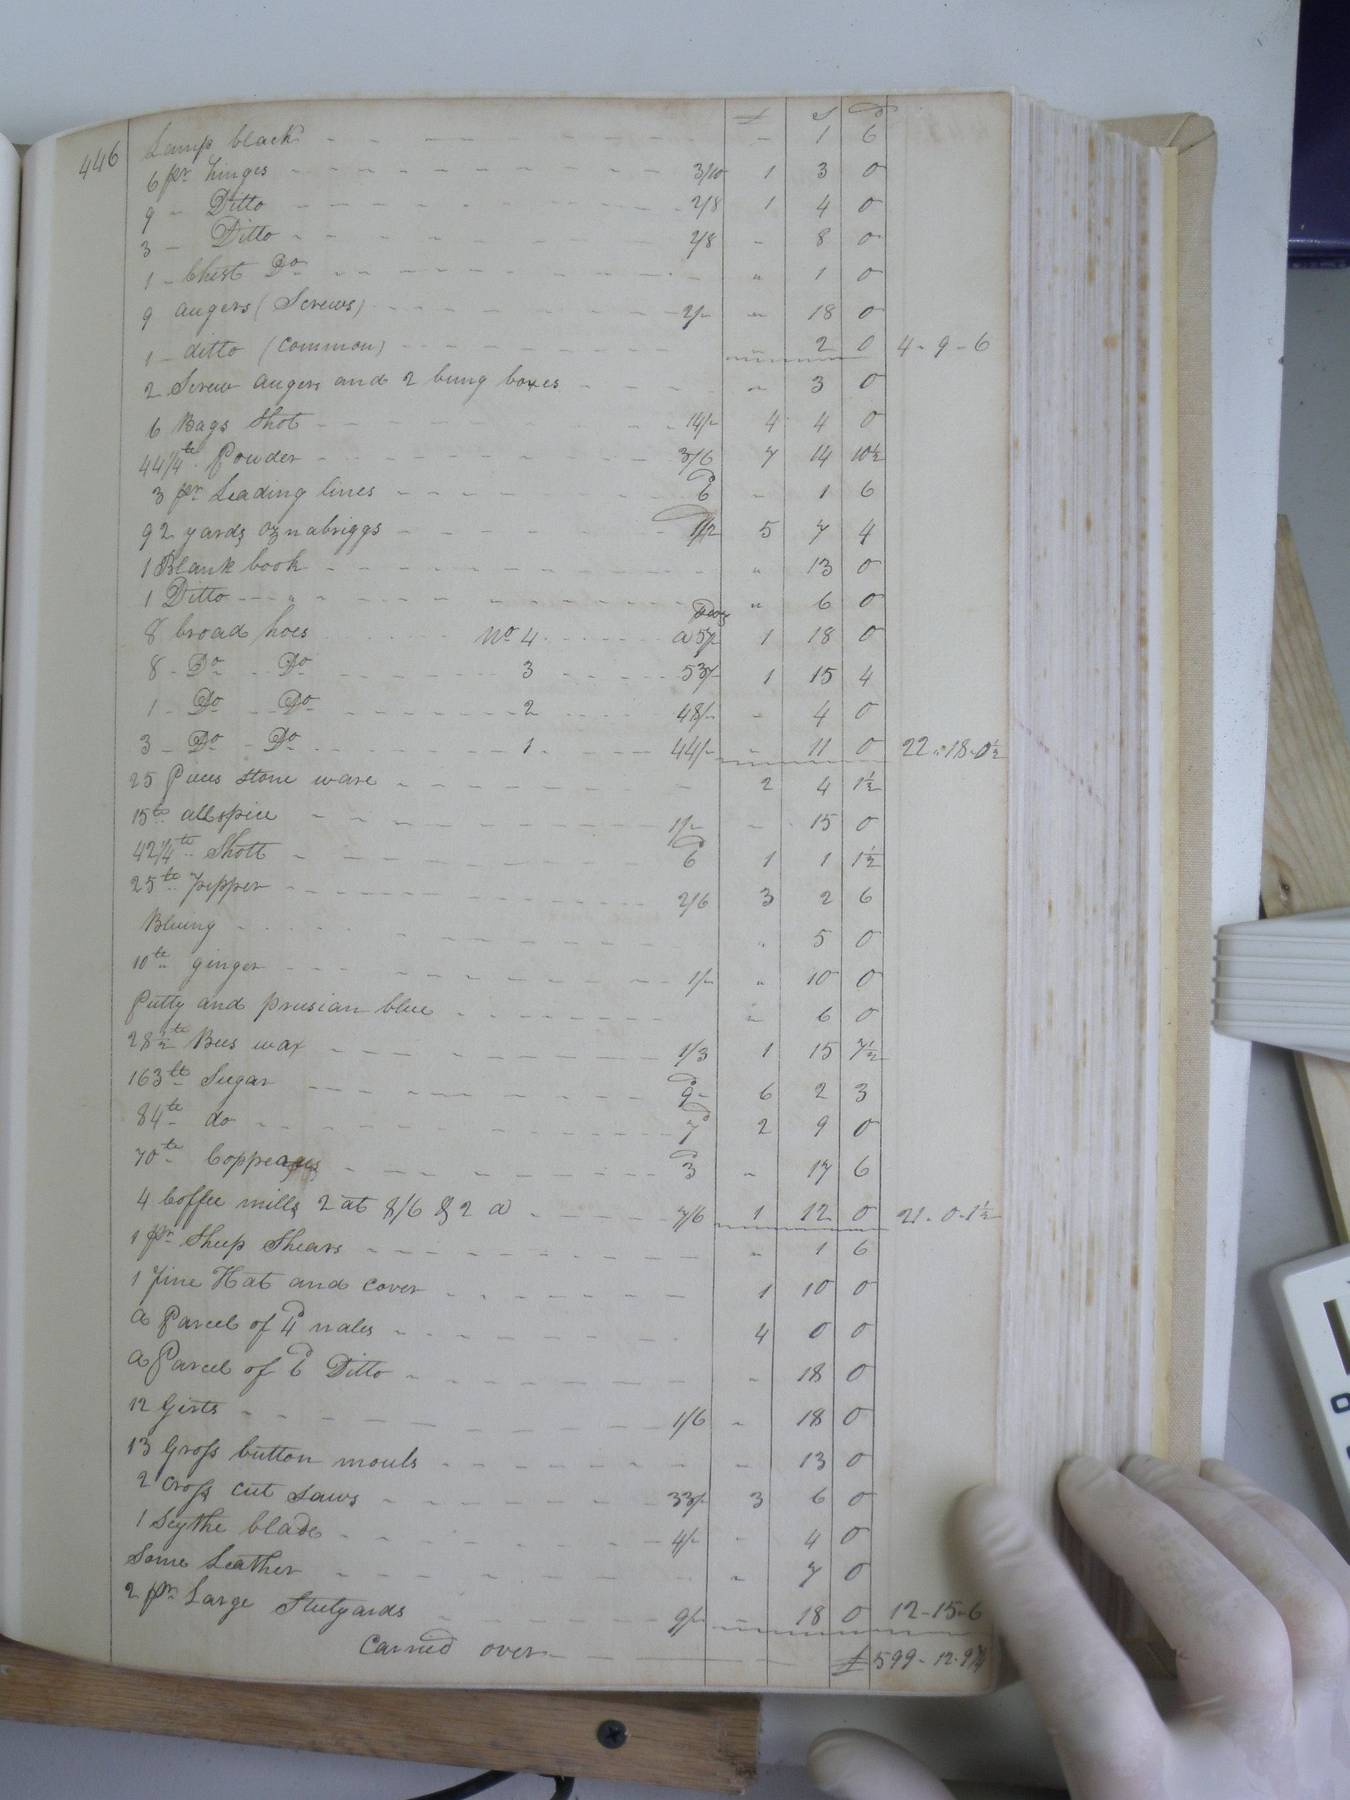 £ S D
446 Lamp black - 1 6
6 pr hinges 3/10 1 3 0
9 - Ditto 2/8 1 4 0
3 - Ditto 2/8 - 8 0
1 - Chest Do " 1 0
9 augers (Screws) 2/- " 18 0
1 - ditto (Common) " 2 0 4 - 9 - 6
2 Screw augers and 2 bung boxes " 3 0
6 Bags Shot 14/- 4 4 0
44 1/4 lb Powder 3/6 7 14 10½
3 pr Leading lines 6d - 1 6
92 yards oznabriggs 1/2 5 7 4
1 Blank book " 13 0
1 Ditto " 6 0
Doz
8 broad hoes No 4 a 57/- 1 18 0
8 - Do Do 3 53/- 1 15 4
1 - Do Do 2 48/- - 4 0
3 - Do - Do 1 44/- - 11 0 22 - 18 - 0½
25 Pieces Stone ware 2 4 1½
15 lb allspice 1/- - 15 0
42 1/4 lb Shott 6d 1 1 1½
25 lb pepper 2/6 3 2 6
Bluing " 5 0
10 lb ginger 1/- " 10 0
Putty and prusian blue " 6 0
28½ lb Bees wax 1/3 1 15 7½
163 lb Sugar 9d 6 2 3
84 lb do 7d 2 9 0
70 lb 3d - 17 6
4 Coffee mills 2 at 8/6 & 2 a 7/6 1 12 0 21 - 0 - 1½
1 pr Sheep Shears " 1 6
1 fine Hat and cover 1 10 0
a Parcel of 4d nales 4 0 0
a Parcel of 6d Ditto - 18 0
12 Girts 1/6 - 18 0
13 Gross button mouls - 13 0
2 Cross cut Saws 33/- 3 6 0
1 Scythe blade 4/- - 4 0
Some Leather " 7 0
2 pr Large Stutyards 9/- - 18 0 12 - 15 - 6
Carried over £ 599 - 12 - 9¼